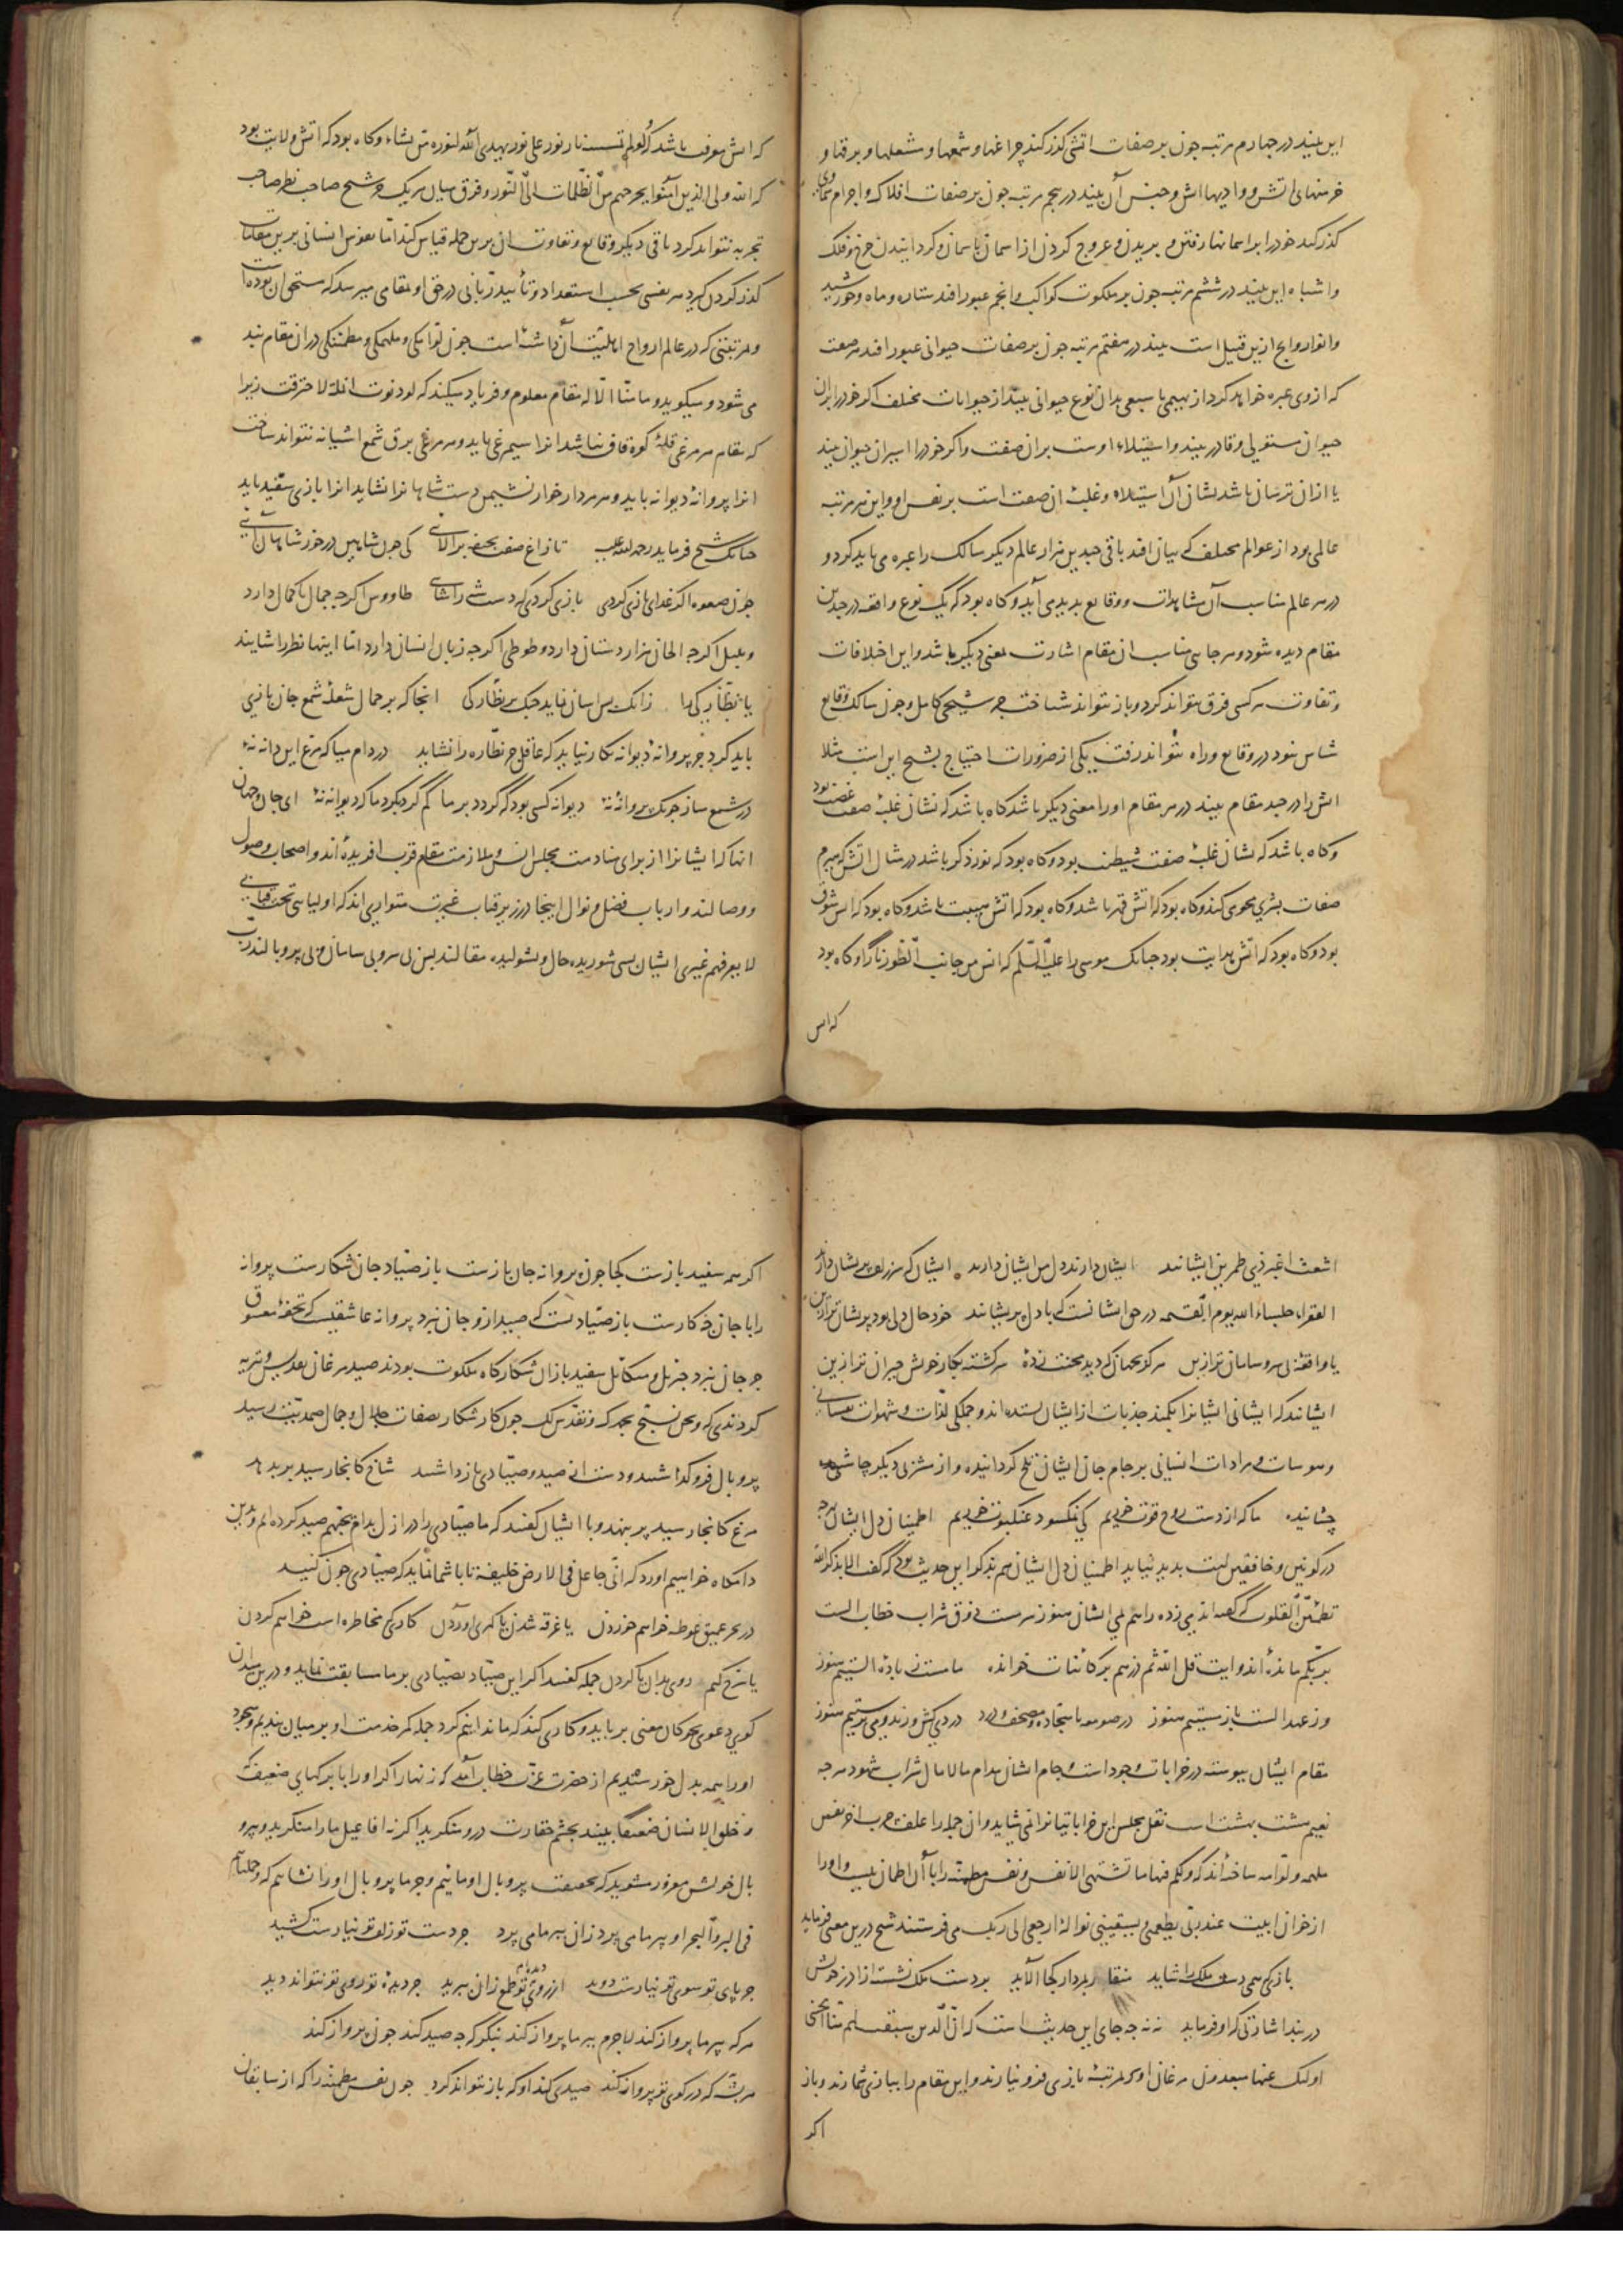 این بیند در چهارم مرتبه چون بر صفات اتشی کذر کند چراغها و شمعها و شعلها و برقها و
خرمنهای اتش و وادیها اتش و جنس آن بیند در پنجم مرتبه چون بر صفات افلاک و اجرام سماوی
کذر کند خود را بر اسمانها رفتن و بریدن و عروج کردن از اسمان باسمان و کردانیدن چرخ و فلک
و اشباه این بیند در ششم مرتبه چون بر ملکوت کواکب و انجم عبور افتد ستاره و ماه و خورشید
و انوار و انچ ازین قبیل است بیند در هفتم مرتبه چون بر صفات حیوانی عبور افتد هر صفت
که ازوی عبره خواهد کرد از بهیمی یا سبعی بدان نوع حیوانی بیند از حیوانات مختلف اکر خود را بران
حیوان مستولی و قادر بیند و استیلاء اوست بران صفت و اکر خود را اسیر ان حیوان بیند
یا ازان ترسان باشد نشان آن استیلاء و غلبه ان صفت است بر نفس او و این هر مرتبه
عالمی بود از عوالم مختلف که بیان افتد باقی چندین هزار عالم دیکر سالک را عبره می باید کرد و
در هر عالم مناسب آن مشاهدات و وقایع پدید می آید و کاه بود که یک نوع واقعه در چندین
مقام دیده شود و هر جایی مناسب ان مقام اشارت بمعنی دیکر باشد و این اختلافات
و تفاوت هر کسی فرق نتواند کرد و باز نتواند شناخت جز شیخی کامل و چون سالک وقایع
شناس نبود در وقایع و راه نتواند رفت یکی از ضرورات احتیاج بشیخ این است مثلا
اتش را در چند مقام بیند در هر مقام او را معنی دیکر باشد کاه باشد که نشان غلبه صفت غضب بود
و کاه باشد که نشان غلبه صفت شیطنت بود و کاه بود که نور ذکر باشد در مثال اتش که هیزم
صفات بشری محو می کند و کاه بود که اتش قهر باشد و کاه بود که اتش هیبت باشد و کاه بود که اتش شوق
بود و کاه بود که اتش هدایت بود چنانک موسی را علیه السلم که انس من جانب الطور نارا و کاه بود
که اتش
که اتش معرفت باشد که ولو لم تمسسه نار نور علی نور یهدی الله لنوره من یشاء و کاه بود که اتش ولایت بود
که الله ولی الذین آمنوا یخرجهم من الظلمات الی النور و فرق میان هریک جز شیخ صاحب نظر صاحب
تجربه نتواند کرد باقی دیکر وقایع و تفاوت ان برین جمله قیاس کند اما نفوس انسانی برین مقامات
کذر کردن کیرد هر نفسی بحسب استعداد و تأیید ربانی در حق او بمقامی میرسد که مستحق ان بوده است
و مرتبتی که در عالم ارواح اهلیت آن داشته است چون لوامکی و ملهمکی و مطمئنکی در ان مقام بند
می شود و میکوید و ما منا الا له مقام معلوم و فریاد میکند که لو دنوت انملة لاحترقت زیرا
که مقام هر مرغی قله کوه قاف نباشد انرا سیمرغی باید و هر مرغی برق شمع اشیانه نتواند ساخت
انرا پروانه دیوانه باید و هر مردار خوار نشیمن دست شاهانرا نشاید انرا بازی سفید باید
چنانک شیخ فرماید رحمة الله علیه تا زاغ صفت بجیفه برآلایی کی چون شاهین در خور شاهان آیی
چون صعوه اکر غذای بازی کردی بازی کردی که دست شه را شایی طاووس اکرچه جمال با کمال دارد
و بلبل اکرچه الحان هزار دستان دارد و طوطی اکرچه زبان انسان دارد اما اینها نظر را شایند
یا نظارکی را زانک بس اسان نماید جنک بر نظارکی انجا که بر جمال شعله شمع جان بازی
باید کرد جز پروانه دیوانه بکار نیاید که عاقل جز نظاره را نشاید در دام میا که مرغ این دانه نه
در شمع مساز چونک پروانه نه دیوانه کسی بود که کردد بر ما کم کرد بکرد ما که دیوانه نه ای جان و جهان
انها که ایشانرا از برای منادمت مجلس انس و ملازمت مقام قرب افریده اند و اصحاب وصول
و وصالند و ارباب فضل و نوال اینجا در زیر قباب غیرت متواری اند که اولیایی تحت قبابی
لا یعرفهم غیری ایشان بسی شوریده حال و بشولیده مقالند بس بی سر و بی سامان و بی پر و بالند رب
اشعث اغبر ذی طمرین ایشانند ایشان دارند دل من ایشان دارند ایشان که سر زلف پریشان دارند
الفقراء جلساء الله یوم القیمه در حق ایشانست که با دل پریشانند خود حال دلی بود پریشان تر ازین
یا واقعه بی سر و سامان تر ازین هرکز بجهان که دید محنت زده سرکشته بکار خویش حیران تر ازین
ایشانند که ایشانی ایشانرا بکمند جذبات از ایشان بستده اند و جملکی لذات و شهوات نفسانی
و هوسات و مرادات انسانی بر جام جان ایشان تلخ کردانیده و از مشربی دیکر چاشنی
چشانیده ما که از دست روح قوت خوریم کی نمکسود عنکبوت خوریم اطمینان دل ایشان بهرچه
در کونین و خافقین است پدید نیاید اطمینان دل ایشان هم بذکر این حدیث بود که کفت الا بذکر الله
تطمئن القلوب که کفته اند می زده را هم می ایشان هنوز سرمست ذوق شراب خطاب الست
بربکم مانده اند و ایت قل الله ثم ذرهم بر کاینات خوانده ما مست ز باده الستیم هنوز
وز عهد الست باز مستیم هنوز در صومعه با سجاده و مصحف و ورد دردی کش و رند و می پرستیم هنوز
مقام ایشان پیوسته در خرابات وجود است و جام ایشان مدام مالامال شراب شهود هرچه
نعیم هشت بهشت است نقل مجلس این خراباتیانرا نمی شاید وان جمله را علف چرب اخر نفس
ملهمه و لوامه ساخته اند که ولکم فیها ما تشتهی الانفس و نفس مطمئنه را با آن اطمینان نیست و او را
از خوان ابیت عند ربی یطعمنی و یسقینی نواله ارجعی الی ربک می فرستند شیخ درین معنی فرماید
بازی که همی دست ملک را شاید منقار بمردار کجا الاید بر دست ملک نشیند ازاد ز خویش
در بند اشارتی که او فرماید نه نه چه جای این حدیث است که ان الذین سبقت لهم منا الحسنی
اولئک عنها مبعدون مرغان او که مرتبه بازی فرو نیارند و این مقام را ببازی شمارند و باز
اکر
اکر همه سفید بازست کجا چون پروانه جان بازست باز صیاد جان شکارست پروانه
را با جان چه کارست باز صیادست که صید از و جان نبرد پروانه عاشقیست که تحفه معشوق
جز جان نبرد جبریل و میکائیل سفید بازان شکارکاه ملکوت بودند صید مرغان تقدیس و تنزیه
کردندی که و نحن نسبح بحمدک و نقدس لک چون کار شکار بصفات جلال و جمال صمدیت رسید
پر و بال فرو کذاشتند و دست از صید و صیادی بازداشتند شاخ کانجا رسید بر بدهد
مرغ کانجا رسید پر بنهد و با ایشان کفتند که ما صیادی را در ازل بدام یحبهم صید کرده ایم و بدین
دامکاه خواهیم اورد که انی جاعل فی الارض خلیفة تا با شما نماید که صیادی چون کنید
در بحر عمیق غوطه خواهم خوردن یا غرقه شدن یا کهری اوردن کار تو مخاطره است خواهم کردن
یا سرخ کنم روی بدان یا کردن جمله کفتند اکر این صیاد بصیادی بر ما مسابقت نماید و درین میدان
کوی دعوی بچوکان معنی برباید و کاری کند که ما ندانیم کرد جمله کمر خدمت او بر میان بندیم و سجود
او را همه بدل خورسندیم از حضرت عزت خطاب آمد که زنهار اکر او را با برکهایی ضعیف که
و خلق الانسان ضعیفا بیند بچشم حقارت درو منکرید اکرنه افاعیل ما را منکرید و بپر و
بال خویش مغرور مشوید که بحقیقت پر و بال او ماییم و جز ما پر و بال او را نشاییم که و حملناهم
فی البر و البحر او بپر ما می پرد زان بپر ما می پرد جز دست تو زلف تو نیارست کشید
جز پای تو سوی تو نیارست دوید از روی تو طمع زان ببرید جز دیده تو روی تو نتواند دید
هرکه بپر ما پرواز کند لاجرم بپر ما پرواز کند بنکر که چه صید کند چون پرواز کند
هر پشه که در کوی تو پرواز کند صیدی کند او که باز نتواند کرد چون نفس مطمئنه را که از سابقان